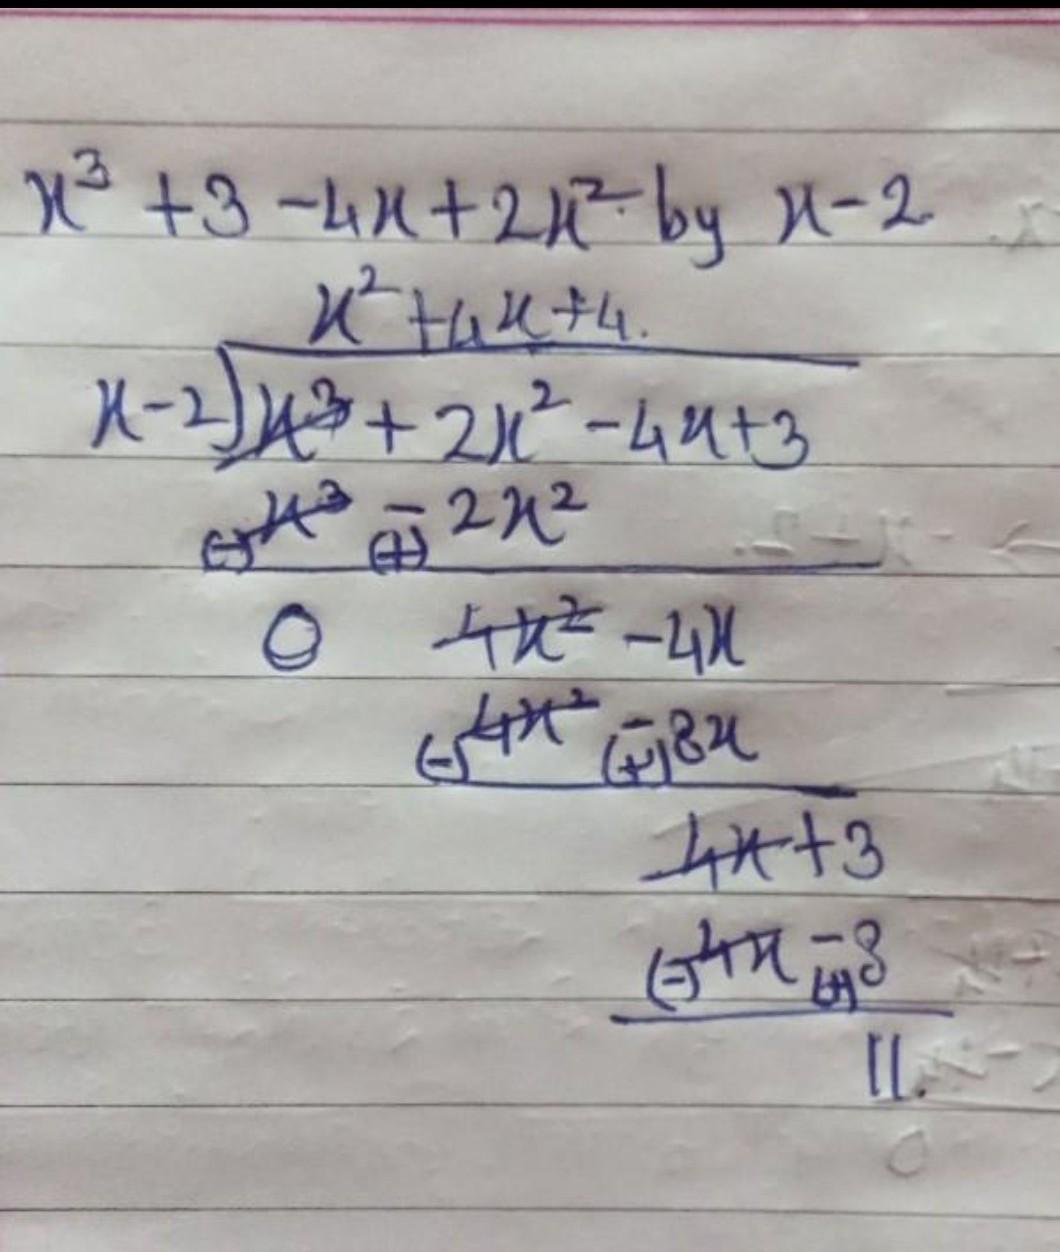 x³ +3 -4x+2x² by x-2
x² +4x+4.
x-2)x³ + 2x² -4x+3
x³ - 2x²
(-) (+)
0 4x² -4x
4x² - 8x
(-) (+)
4x+3
4x - 8
(-) (+)
11.